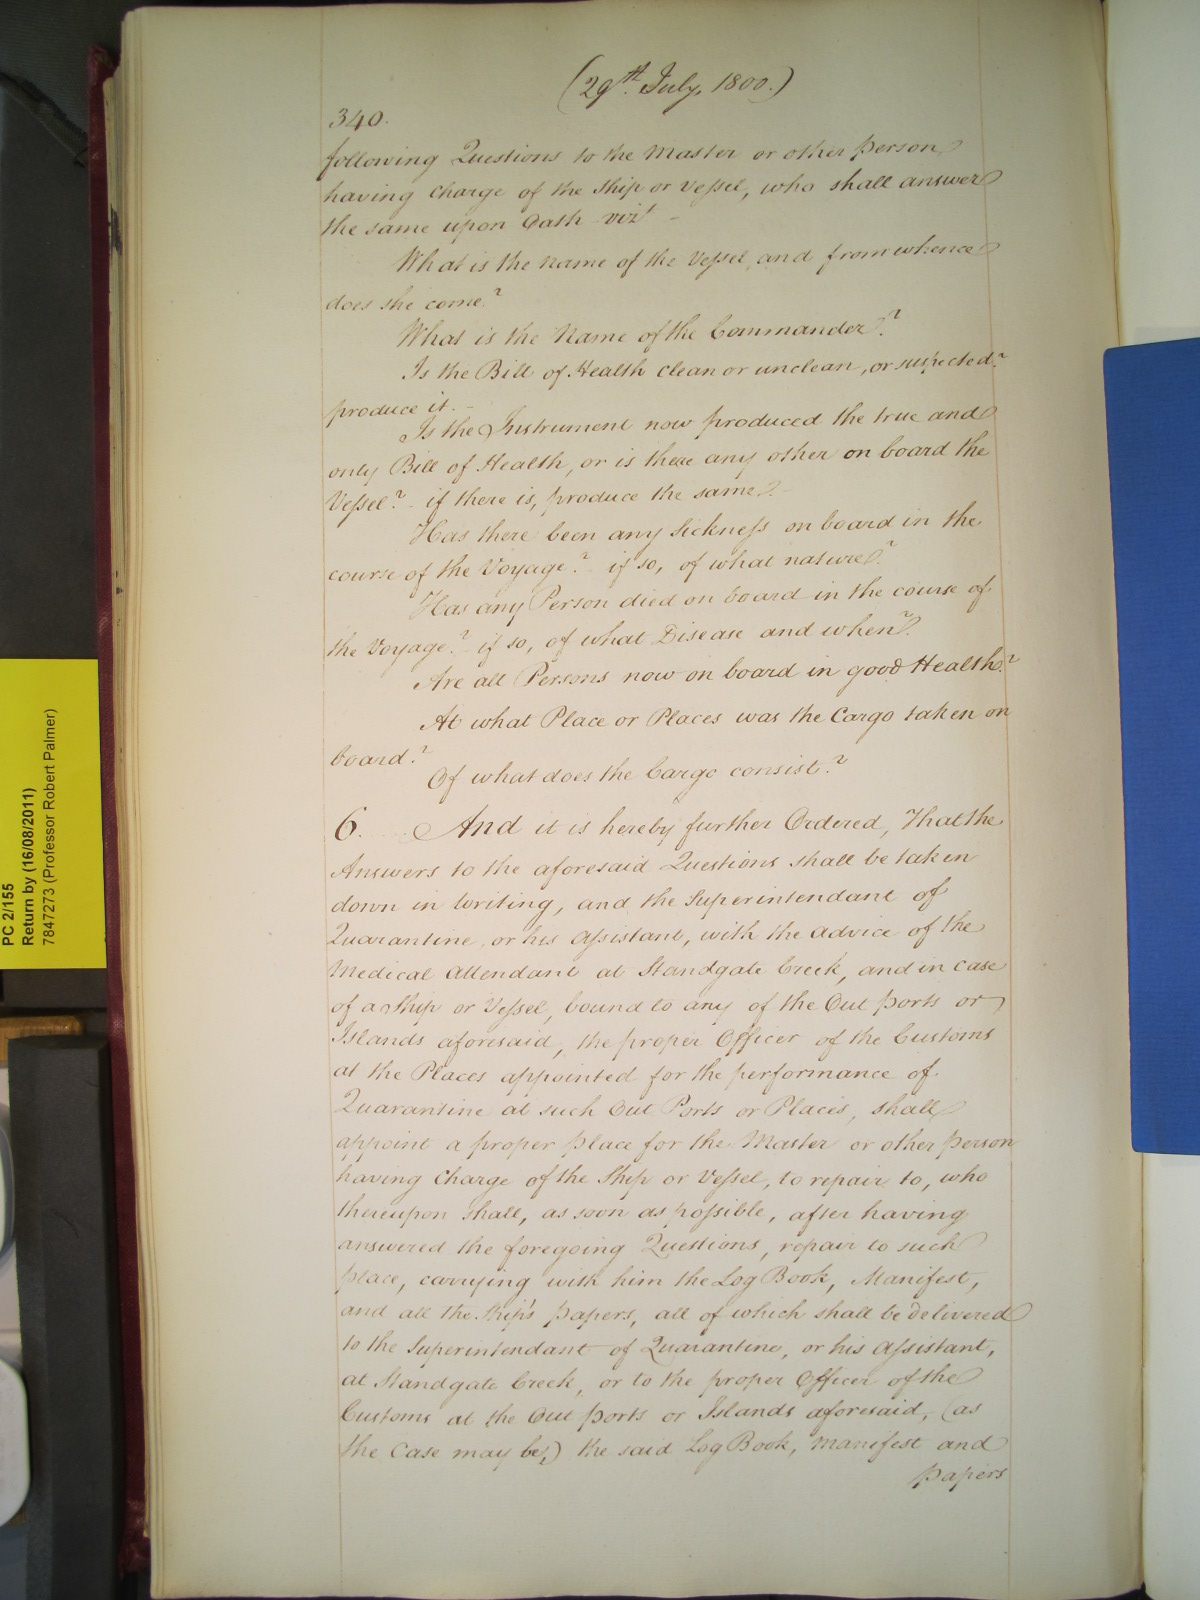 (29th July, 1800.)
340.
following Questions to the Master or other Person
having Charge of the Ship or Vessel, who shall answer
the same upon Oath vizt -
What is the name of the Vessel and from whence
does she come?
What is the Name of the Commander?
Is the Bill of Health clean or unclean, or suspected?
produce it. -
Is the Instrument now produced the true and
only Bill of Health, or is there any other on board the
Vessel? - if there is, produce the same. -
Has there been any Sickness on board in the
course of the Voyage? - if so, of what nature?
Has any Person died on board in the course of
the Voyage? - if so, of what Disease and when?
Are all Persons now on board in good Health?
At what Place or Places was the Cargo taken on
board?
Of what does the Cargo consist?
6. And it is hereby further Ordered, That the
Answers to the aforesaid Questions shall be taken
down in Writing, and the Superintendant of
Quarantine, or his Assistant, with the Advice of the
Medical Attendant at Standgate Creek, and in case
of a Ship or Vessel, bound to any of the Out Ports or
Islands aforesaid, the proper Officer of the Customs
at the Places appointed for the performance of
Quarantine at such Out Ports or Places, shall
appoint a proper Place for the Master or other Person
having Charge of the Ship or Vessel, to repair to, who
thereupon shall, as soon as possible, after having
answered the foregoing Questions, repair to such
place, carrying with him the Log Book, Manifest,
and all the Ship's Papers, all of which shall be delivered
to the Superintendant of Quarantine, or his Assistant,
at Standgate Creek, or to the proper Officer of the
Customs at the Out Ports or Islands aforesaid, (as
the Case may be,) the said Log Book, Manifest and
Papers
PC 2/155
Return by (16/08/2011)
7847273 (Professor Robert Palmer)